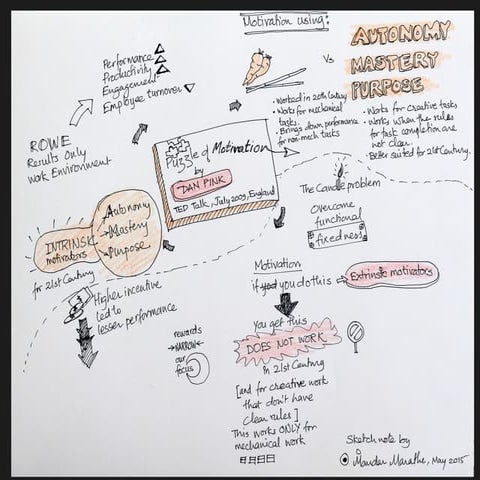 Motivation using:
AUTONOMY
MASTERY
PURPOSE
Vs
Performance
Productivity
Engagement
Employee turnover
• Worked in 20th Century
• Works for mechanical
tasks.
• Brings down performance
for non-mech tasks
• Works for Creative tasks
• Works when the rules
for task completion are
not clear.
• Better suited for 21st Century.
ROWE
Results Only
Work Environment
Puzzle of Motivation
by
DAN PINK
TED Talk, July 2009, England
The Candle problem
Overcome
functional
fixedness
Autonomy
Mastery
Purpose
INTRINSIC
motivators
for 21st Century
Higher incentive
led to
lesser performance
rewards
NARROW
our
focus
Motivation
if you do this
Extrinsic motivators
You get this
DOES NOT WORK
in 21st Century
[and for creative work
that don't have
clear rules]
This works ONLY for
mechanical work
Sketchnote by
Mandar Marathe, May 2015